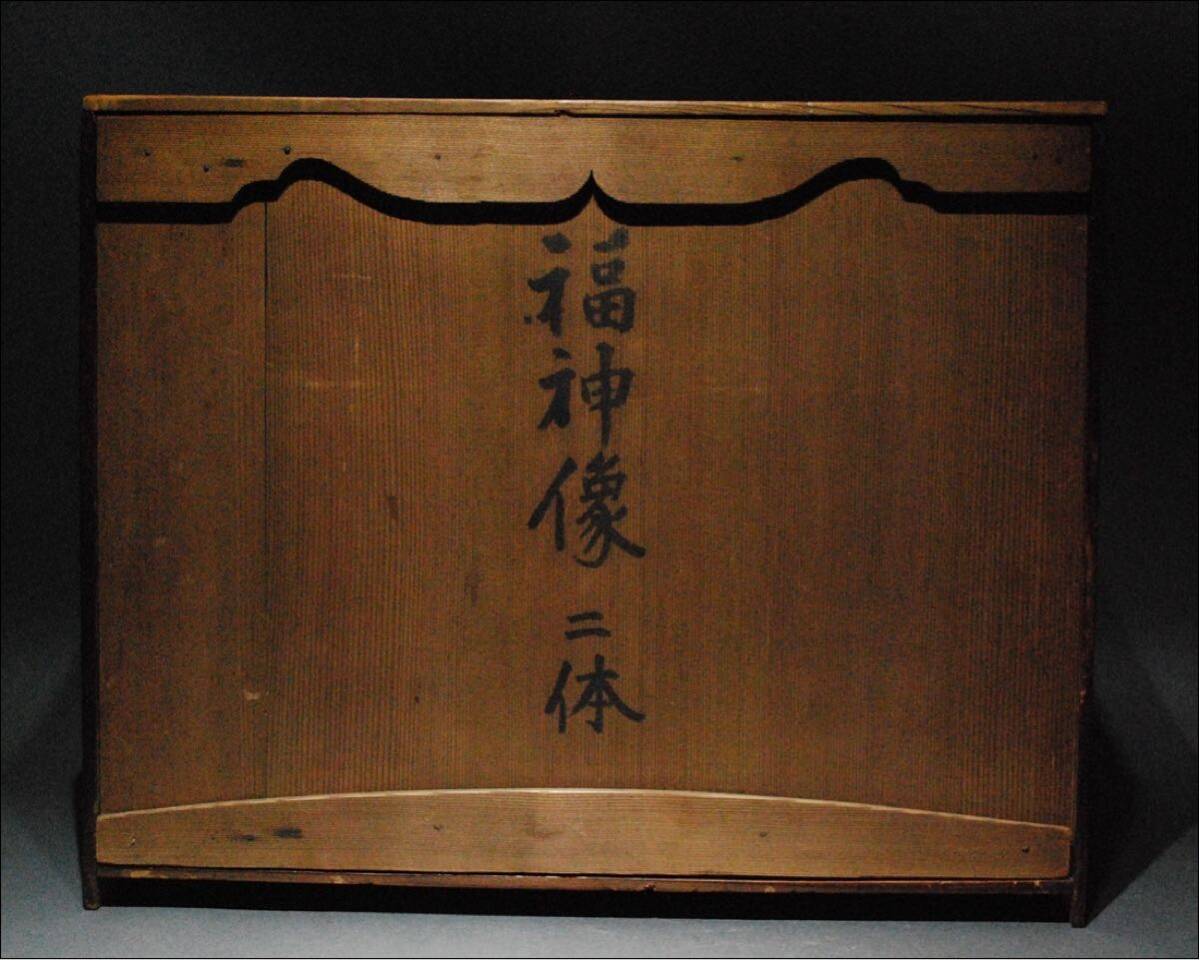 福神像二体